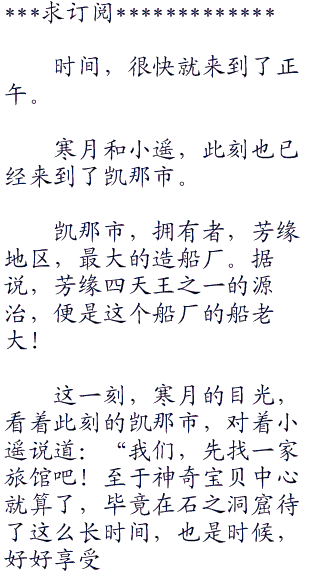 ***求订阅*************
时间，很快就来到了正
午。
寒月和小遥，此刻也已
经来到了凯那市。
凯那市，拥有者，芳缘
地区，最大的造船厂。据
说，芳缘四天王之一的源
治，便是这个船厂的船老
大！
这一刻，寒月的目光，
看着此刻的凯那市，对着小
遥说道：“我们，先找一家
旅馆吧！至于神奇宝贝中心
就算了，毕竟在石之洞窟待
了这么长时间，也是时候，
好好享受